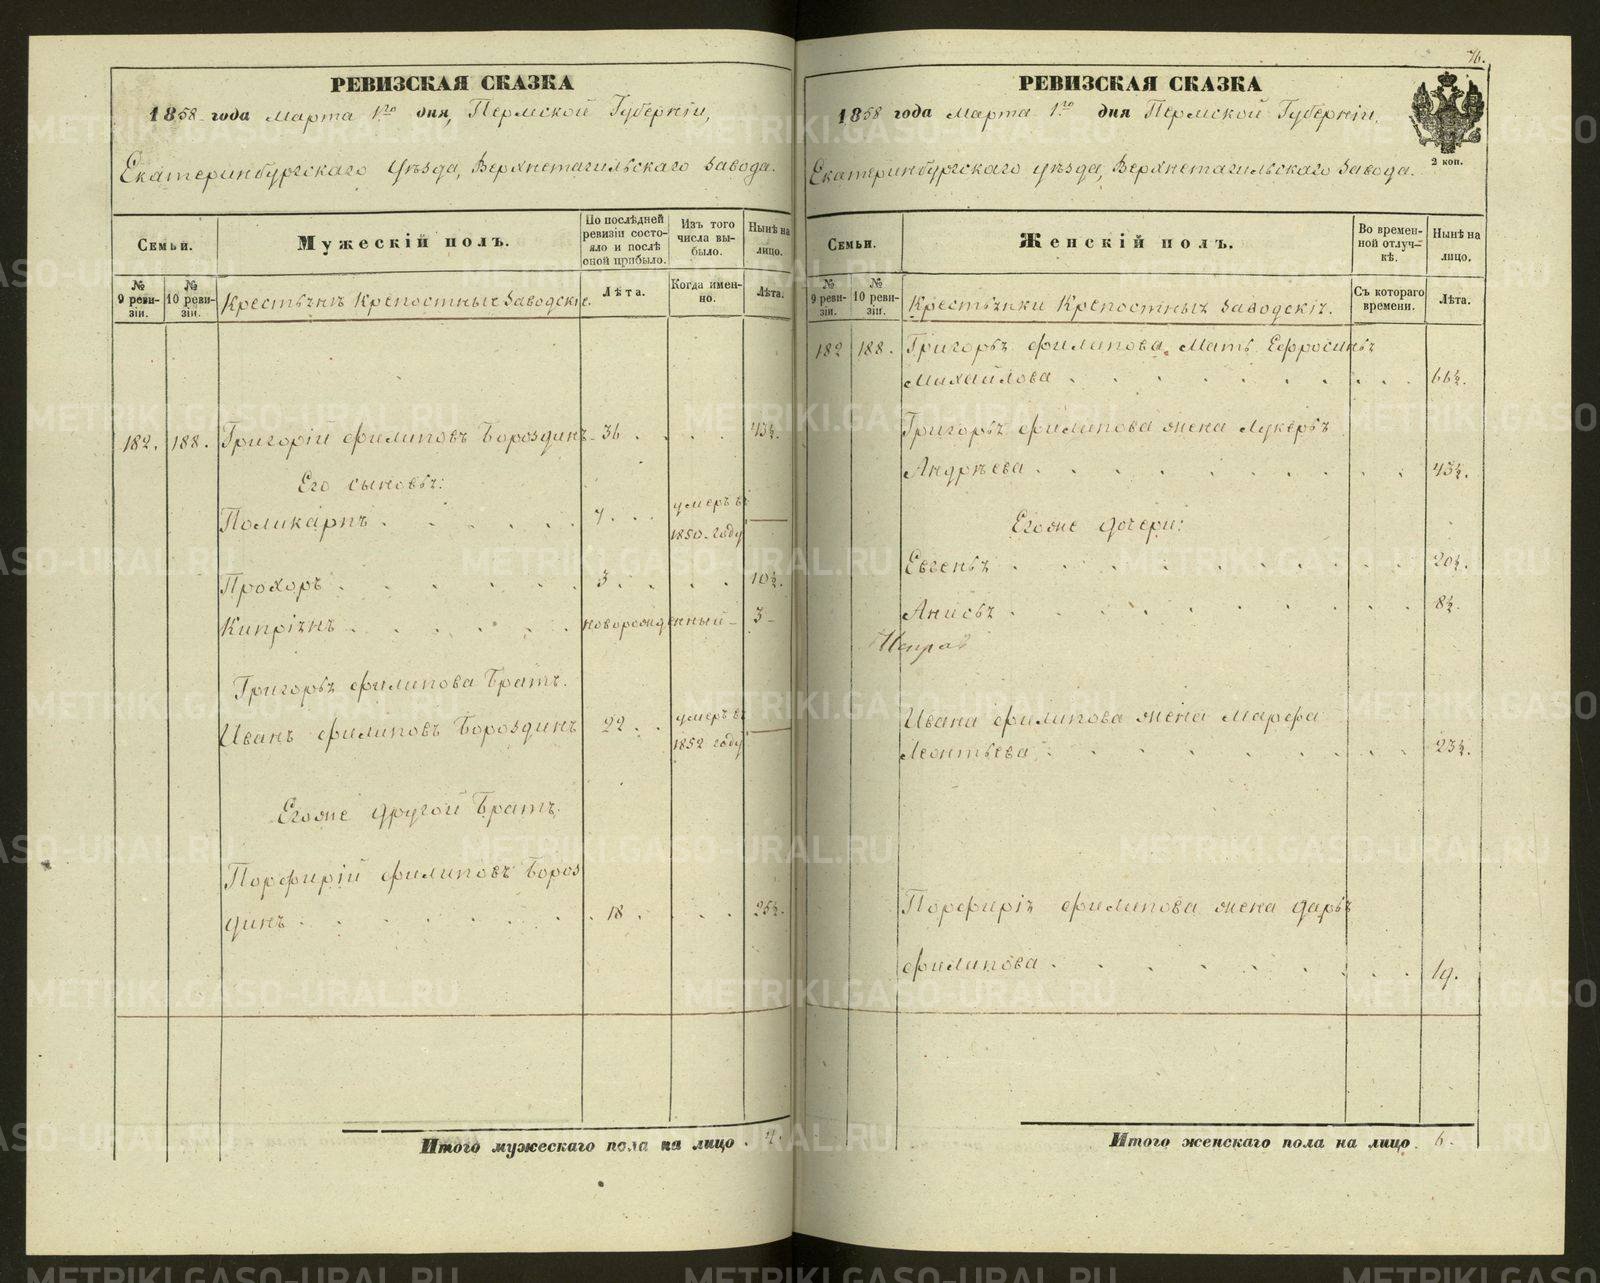 РЕВИЗСКАЯ СКАЗКА
1858 года марта 1го дня, Пермской Губерніи,
Екатеринбургскаго уѣзда, Верхнетагильскаго завода.
Семьи.
Мужескій полъ.
По послѣдней ревизіи состояло и послѣ оной прибыло.
Изъ того числа выбыло.
Нынѣ на лицо.
№ 9 ревизіи.
№ 10 ревизіи.
Крестьянъ Крѣпостныхъ Заводскіе.
Лѣта.
Когда именно.
Лѣта.
182. 188. Григорій Филиповъ Бороздинъ 36 . . . . 43½.
Его сыновья:
Поликарпъ . . . . . 7 . . . умеръ въ 1850 году —
Прохоръ . . . . . . 3 . . . . 10½.
Кипріянъ . . . . . . новорожденный - 3 -
Григорья Филипова Братъ.
Иванъ Филиповъ Бороздинъ 22 . . умеръ въ 1852 году —
Егоже другой Братъ.
Порфирій Филиповъ Бороз
динъ . . . . . . . . 18 . . . . 25½.
Итого мужескаго пола на лицо . 4.
76.
РЕВИЗСКАЯ СКАЗКА
1858 года марта 1го дня Пермской Губерніи,
Екатеринбургскаго уѣзда, Верхнетагильскаго Завода.
2 коп.
Семьи.
Женскій полъ.
Во временной отлучкѣ.
Нынѣ на лицо.
№ 9 ревизіи.
№ 10 ревизіи.
Крестьянки Крѣпостныхъ Заводскія.
Съ котораго времени.
Лѣта.
182 188. Григорья Филипова Мать Ефросинья
Михайлова . . . . . . . . . . . 66½.
Григорья Филипова жена Лукерья
Андрѣева . . . . . . . . . . 43½.
Егоже дочери:
Евгенья . . . . . . . . . . . 20½.
Анисья . . . . . . . . . . . 8½.
Ивана Филипова жена Марфа
Леонтьева . . . . . . . . . . 23½.
Порфирія Филипова жена Дарья
Филипова . . . . . . . . . . 19.
Итого женскаго пола на лицо. 6.
METRIKI.GASO-URAL.RU